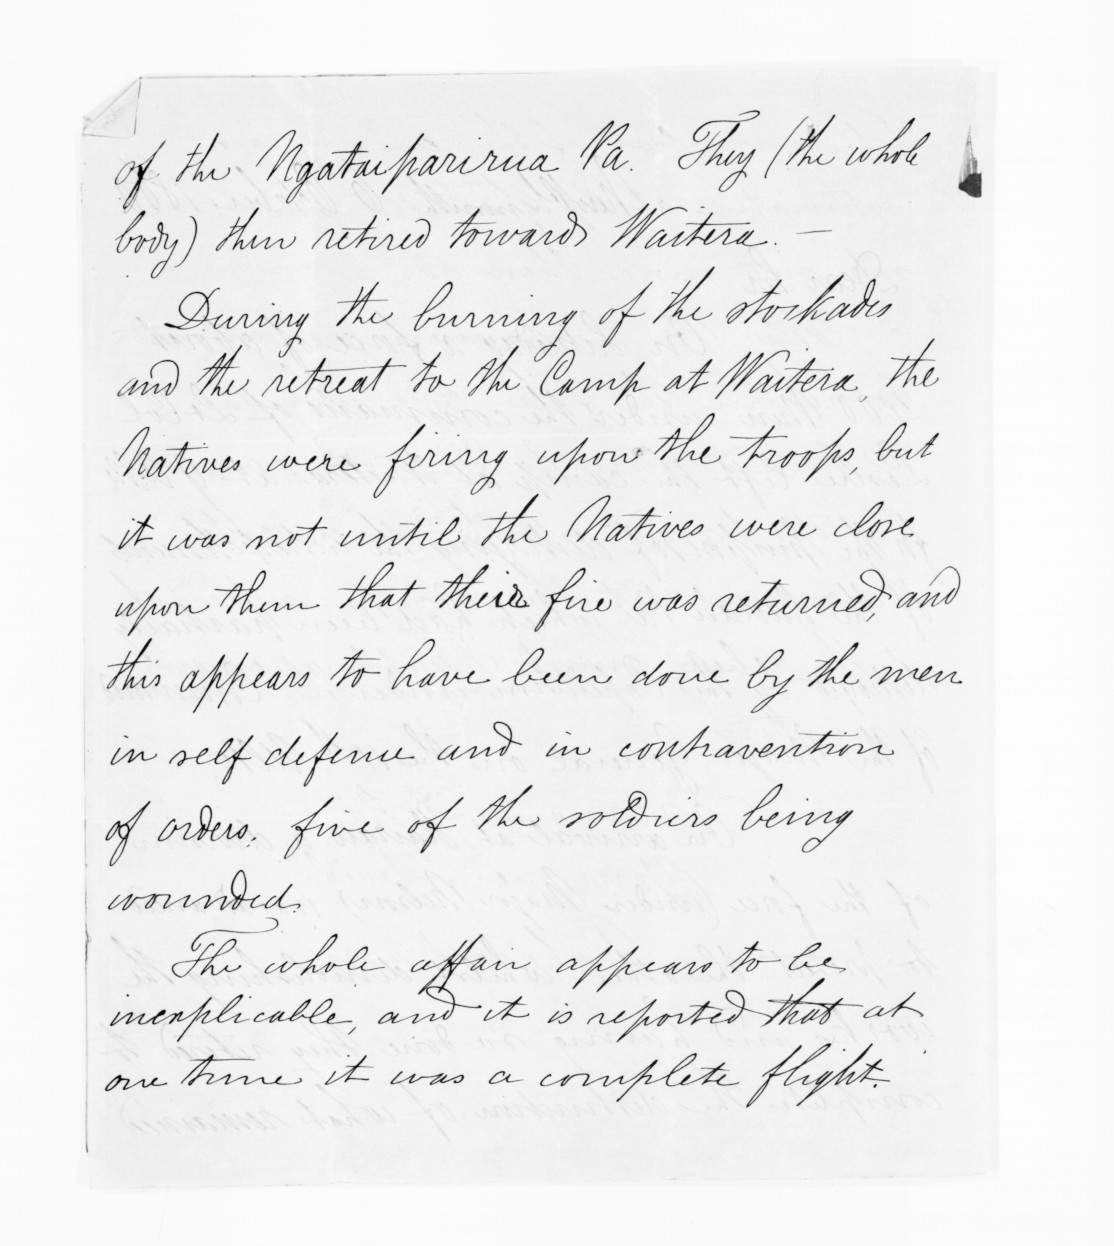 of the Ngataiparirua Pa. They (the whole
body) then retired towards Waitera. —
During the burning of the stockades
and the retreat to the Camp at Waitera, the
Natives were firing upon the troops, but
it was not until the Natives were close
upon them that their fire was returned, and
this appears to have been done by the men
in self defence and in contravention
of orders. five of the soldiers being
wounded.
The whole affair appears to be
inexplicable, and it is reported that at
one time it was a complete flight.